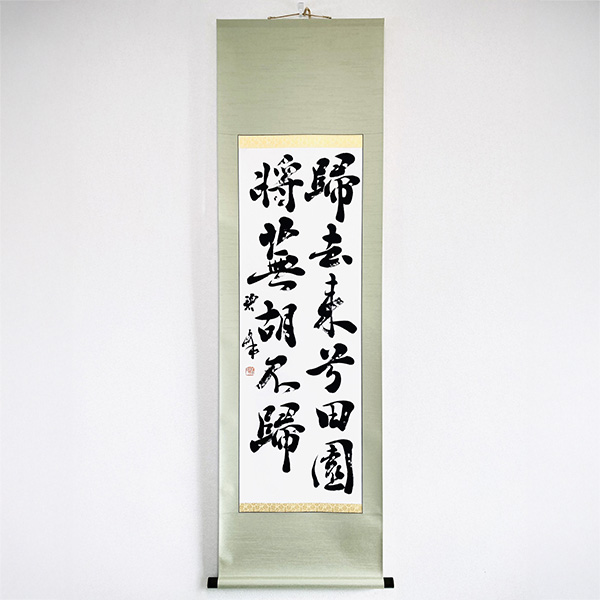 歸去来兮田園
將蕪胡不歸